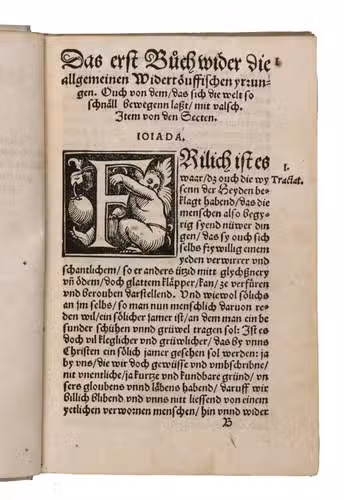 Das erst Bůch wider die
allgemeinen Widertöuffischen yrrun-
gen. Ouch von dem/das sich die welt so
schnäll bewegenn laßt/mit valsch.
Item von den Secten.
IOIADA.
I.
FRilich ist es
waar/dz ouch die wy
Tractat.
senn der Heyden be-
klagt habend/das die
menschen also begy-
rig syend nüwer din
gen/das sy ouch sich
selbs frywillig einem
yeden verwirrer vn
schantlichem/so er anders ützid mitt glychßnery
vñ ödem/doch glattem kläpper/kan/ze verfüren
vnd berouben darstellend. Vnd wiewol sölichs
an jm selbs/so man nun menschlich daruon re-
den wil/ein sölicher jamer ist/an dem man ein be
sunder schühen vnnd grüwel tragen sol: Ist es
doch vil kleglicher vnd grüwlicher/das by vnns
Christen ein sölich jamer gesehen sol werden: ja
by vns/die wir doch gewüsse vnd vmbschribne/
nit vnentliche/ja kurtze vnd kundbare gründ/vn
sers gloubens vnnd läbens habend/daruff wir
billich blibend vnd vnns nitt liessend von einem
yetlichen verwornen menschen/hin vnnd wider
B